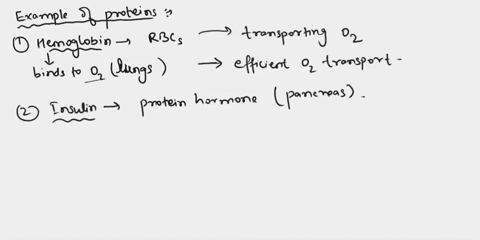 Example of proteins :-
① Hemoglobin → RBCs → transporting O₂
↓
binds to O₂ (lungs) → efficient O₂ transport.
② Insulin → protein hormone (pancreas).